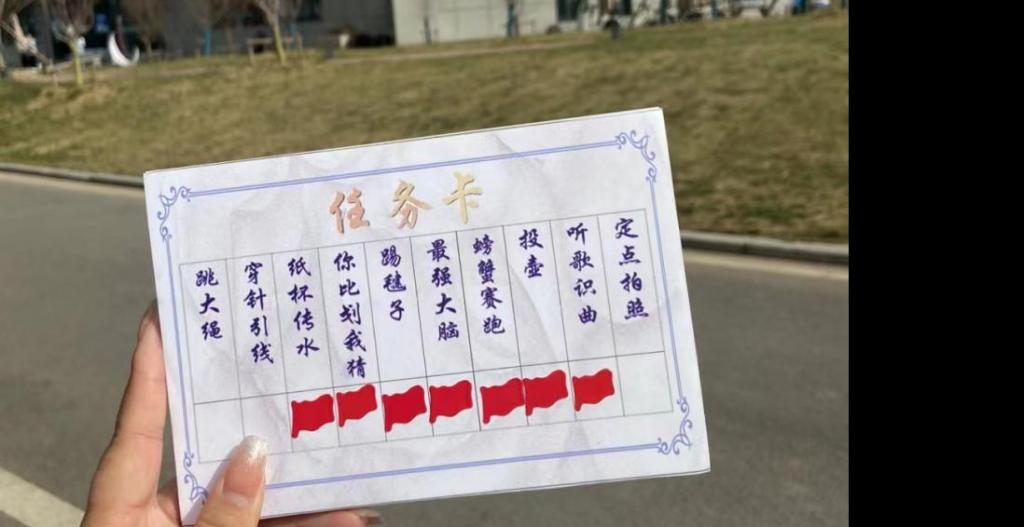 任务卡
跳大绳
穿针引线
纸杯传水
你比划我猜
踢毽子
最强大脑
螃蟹赛跑
投壶
听歌识曲
定点拍照